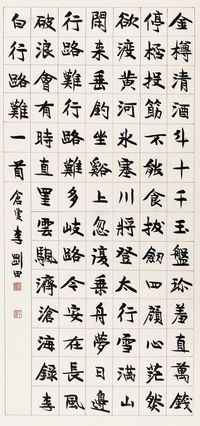 金樽清酒斗十千玉盤珍羞直萬錢
停桮投筯不能食拔劔四顧心茫然
欲渡黃河冰塞川將登太行雪滿山
閒來垂釣坐谿上忽復乘舟夢日邊
行路難行路難多岐路今安在長風
破浪會有時直挂雲颿濟滄海錄李
白行路難一首 李剛田